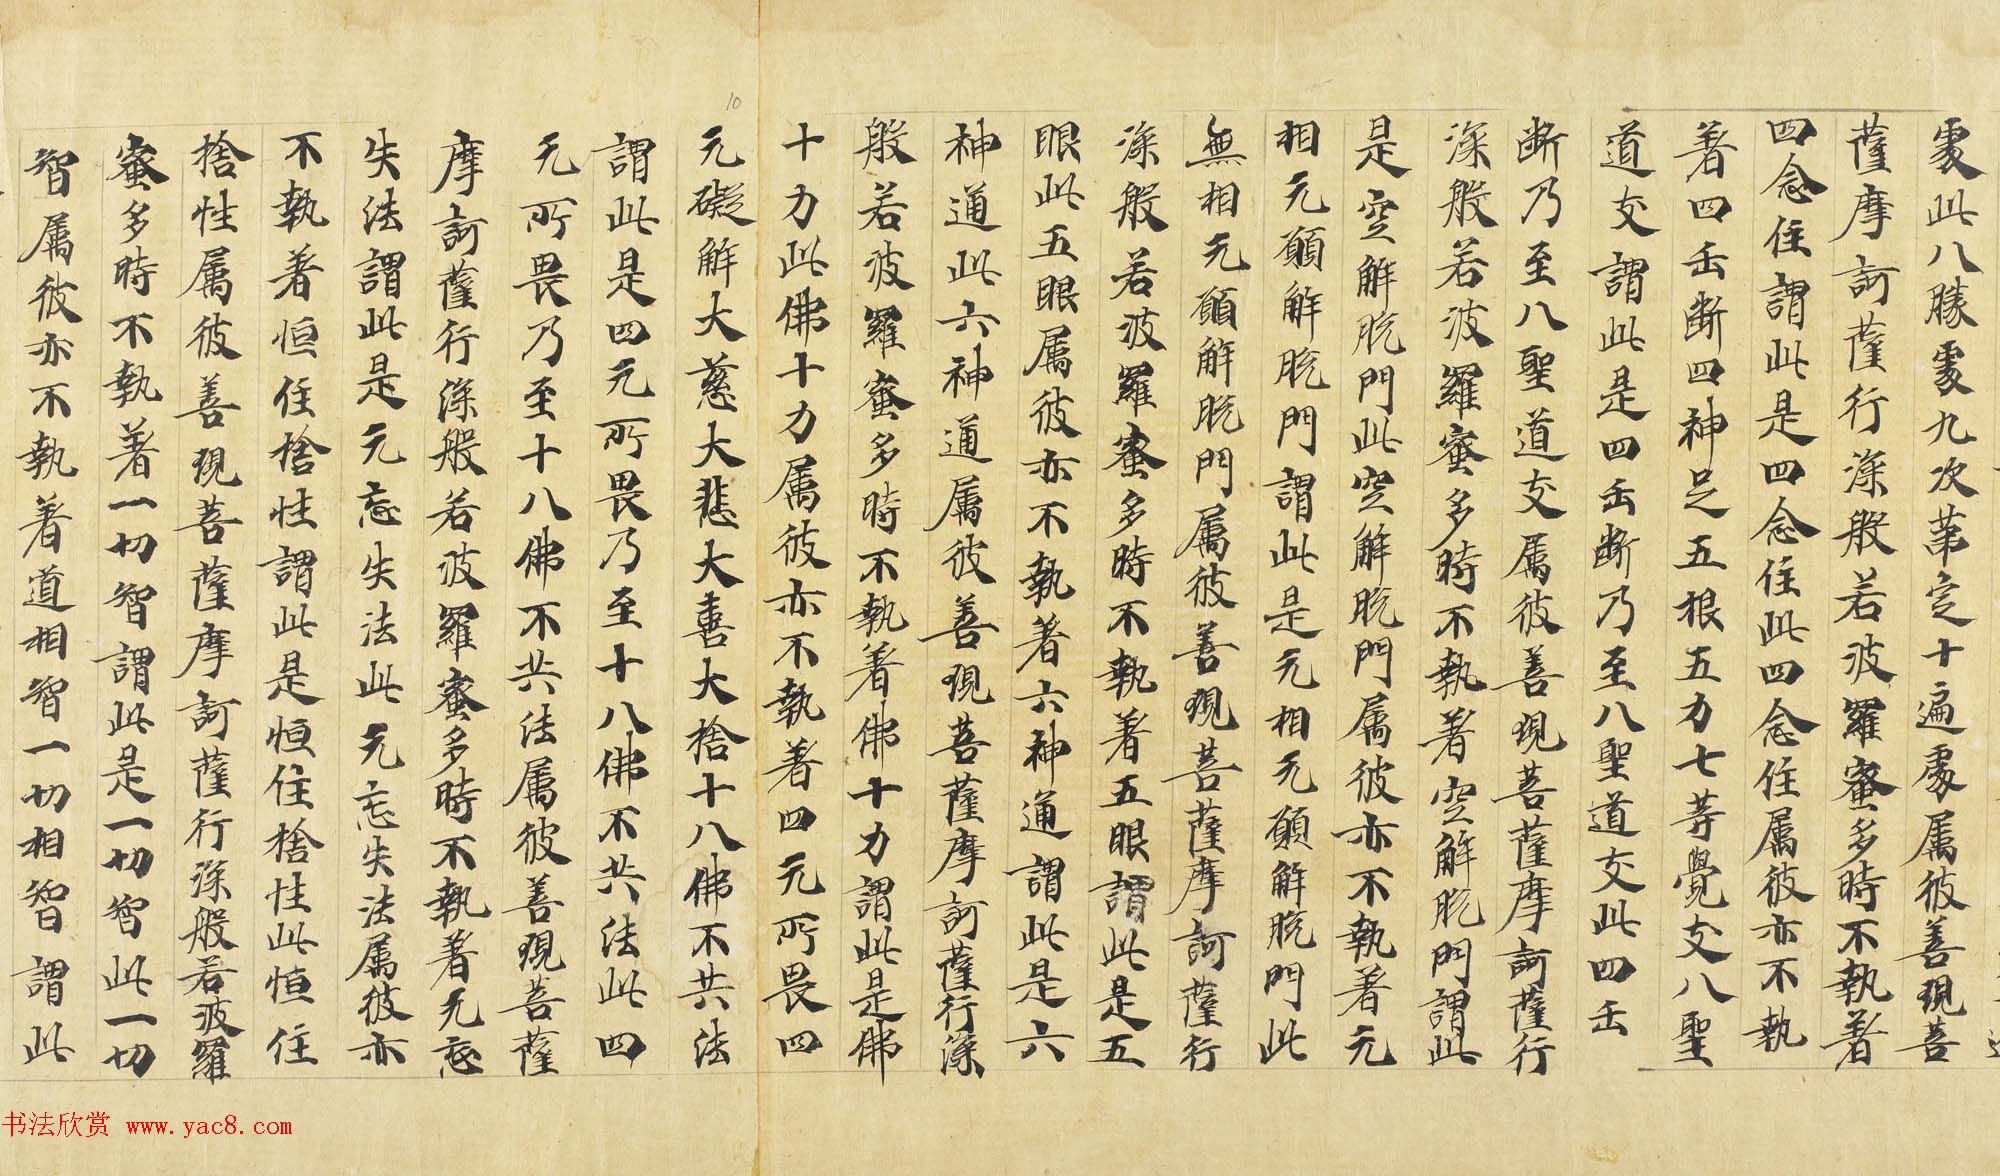 處此八勝處九次苐定十遍處属彼善現菩
薩摩訶薩行深般若波羅蜜多時不執著
四念住謂此是四念住此四念住属彼亦不執
著四㱏断四神足五根五力七菩覺支八聖
道支謂此是四㱏断乃至八聖道支此四㱏
断乃至八聖道支属彼善現菩薩摩訶薩行
深般若波羅蜜多時不執著空解脫門謂此
是空解脫門此空解脫門属彼亦不執著无
相无願解脫門謂此是无相无願解脫門此
無相无願解脫門属彼善現菩薩摩訶薩行
深般若波羅蜜多時不執著五眼謂此是五
眼此五眼属彼亦不執著六神通謂此是六
神通此六神通属彼善現菩薩摩訶薩行深
般若波羅蜜多時不執著佛十力謂此是佛
十力此佛十力属彼亦不執著四无所畏四
无礙解大慈大悲大喜大捨十八佛不共法
謂此是四无所畏乃至十八佛不共法此四
无所畏乃至十八佛不共法属彼善現菩薩
摩訶薩行深般若波羅蜜多時不執著无忘
失法謂此是无忘失法此无忘失法属彼亦
不執著恒住捨性謂此是恒住捨性此恒住
捨性属彼善現菩薩摩訶薩行深般若波羅
蜜多時不執著一切智謂此是一切智此一切
智属彼亦不執著道相智一切相智謂此
10
书法欣赏 www.yac8.com